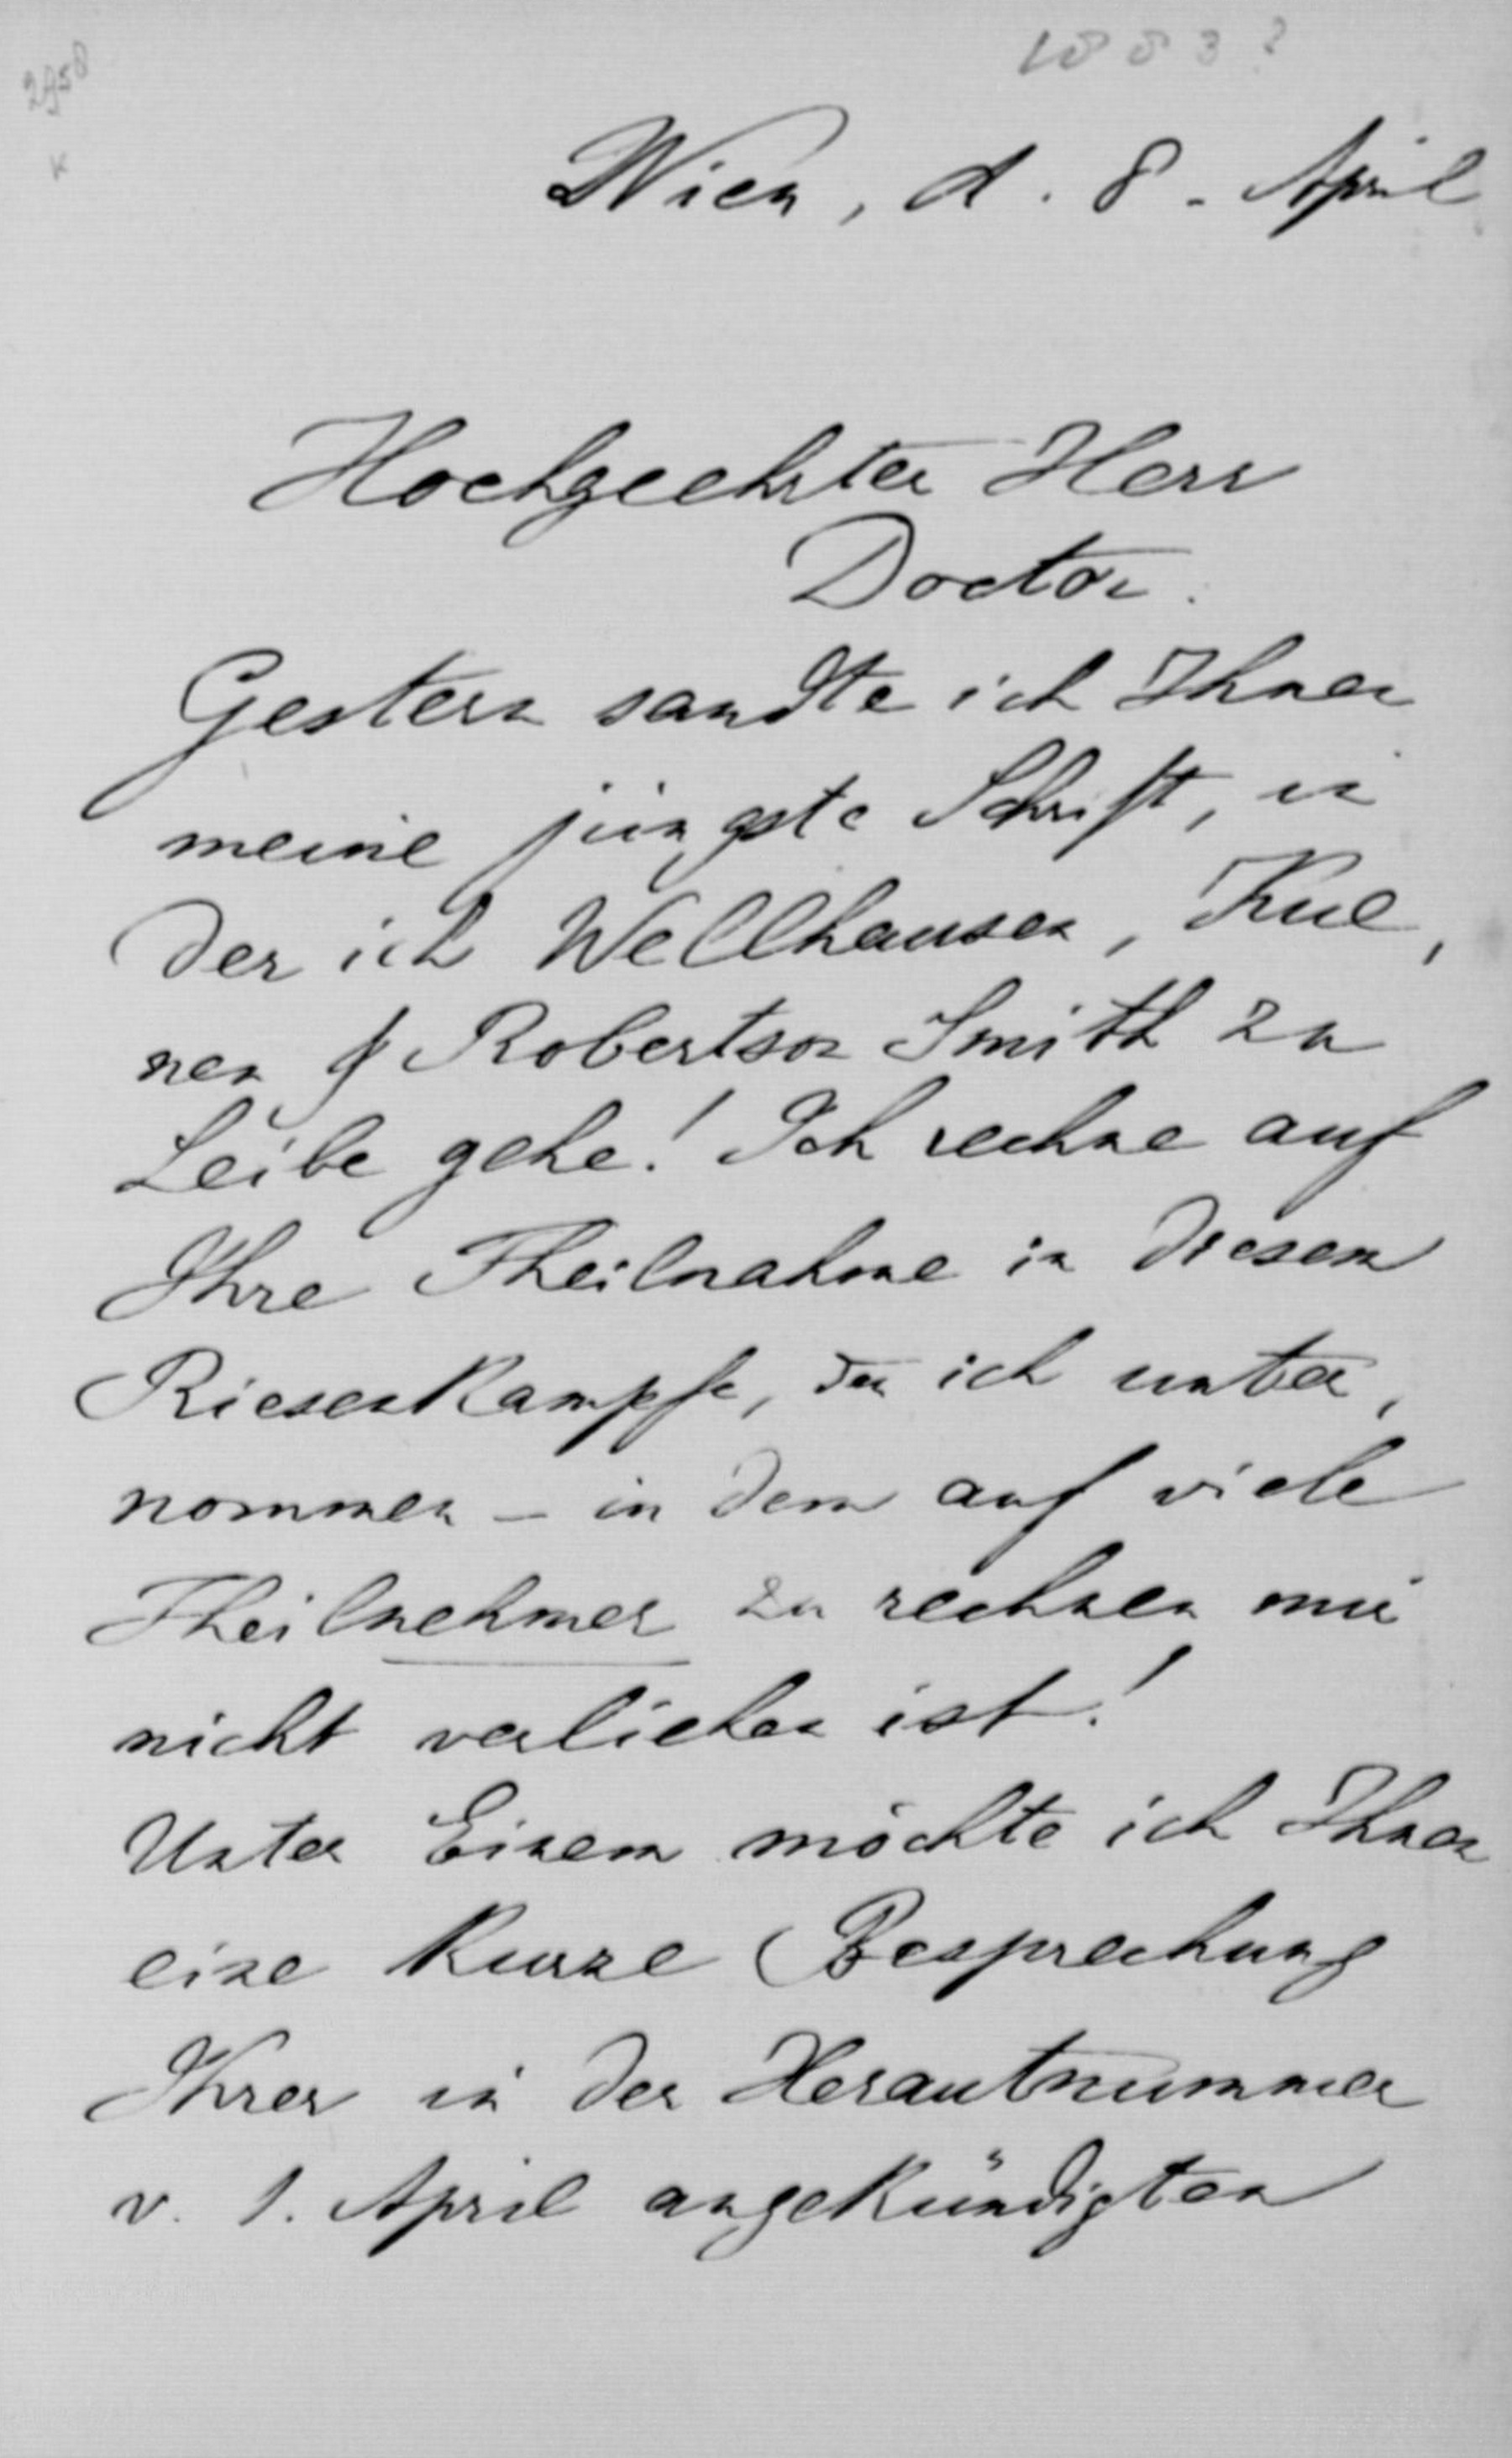 1883?
2958
K
Wien, d. 8. April
Hochgeehrter Herr
Doctor.
Gestern sandte ich Ihnen
meine jüngste Schrift, in
der ich Wellhausen, Kue,
nen & Robertson Smith zu
Leibe gehe! Ich rechne auf
Ihre Theilnahme in diesem
Riesenkampfe, den ich unter,
nommen – in dem auf viele
Theilnehmer zu rechnen mir
nicht verliehen ist!
Unter Einem möchte ich Ihnen
eine kurze Besprechung
Ihrer in der Herautnummer
v. 1. April angekündigten